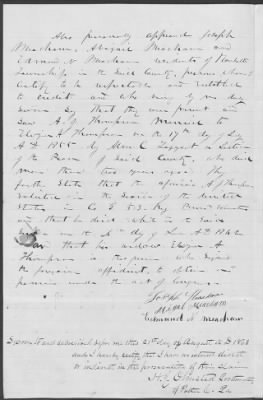 Also personally appeared Joseph
Meacham, Abigail Meacham and
Edmund N Meacham residents of
Township in the said County, persons whom I
certify to be respectable and entitled
to credit and who being by me duly
sworn say that they were present and
saw A. J. Thompson married to
Thompson on the 17th day of
AD 1855 by C. Taggart a Justice
of the Peace of said County, who died
more than two years ago. They
further state that the aforesaid A J Thompson
volunteered in the service of the United
States in Co
and that he died while in the said
on the day of AD 1862
and that his widow
Thompson is the person who signed
the foregoing affidavit, to obtain a
pension under the act of Congress.
Joseph Meacham
Abigail Meacham
Edmund N. Meacham
Sworn to and subscribed before me this 21st day of August A D 1863
and I hereby certify that I have no interest direct
or indirect in the prosecution of this claim
H J Olmsted
of Potter C. Pa